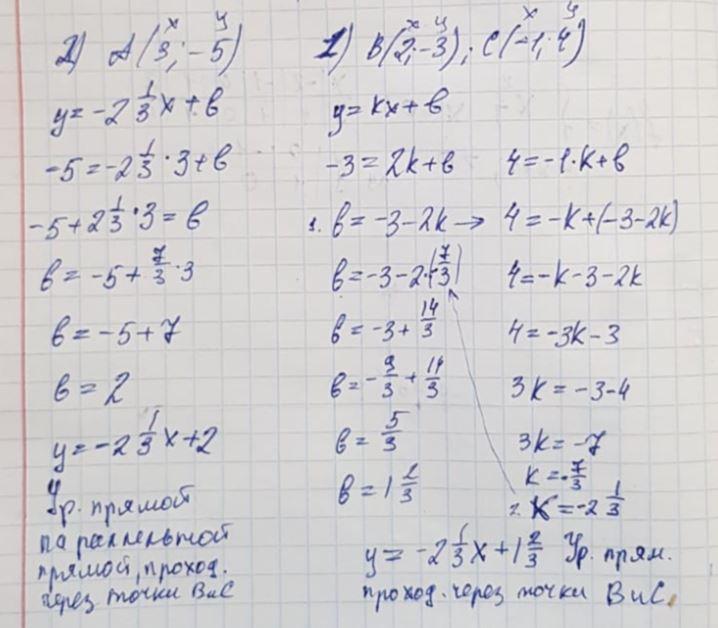 2) A(3; -5)
x y
y = -2 1/3 x + в
-5 = -2 1/3 · 3 + в
-5 + 2 1/3 · 3 = в
в = -5 + 7/3 · 3
в = -5 + 7
в = 2
y = -2 1/3 x + 2
Ур. прямой
параллельной
прямой, проход.
через точки В и С
1) B(2; -3); C(-1; 4)
x y x y
y = kx + в
-3 = 2k + в 4 = -1·k + в
1. в = -3 - 2k → 4 = -k + (-3 - 2k)
в = -3 - 2·(7/3) 4 = -k - 3 - 2k
в = -3 + 14/3 4 = -3k - 3
в = -9/3 + 14/3 3k = -3 - 4
в = 5/3 3k = -7
k = -7/3
в = 1 2/3 2. k = -2 1/3
y = -2 1/3 x + 1 2/3 Ур. прям.
проход. через точки В и С.